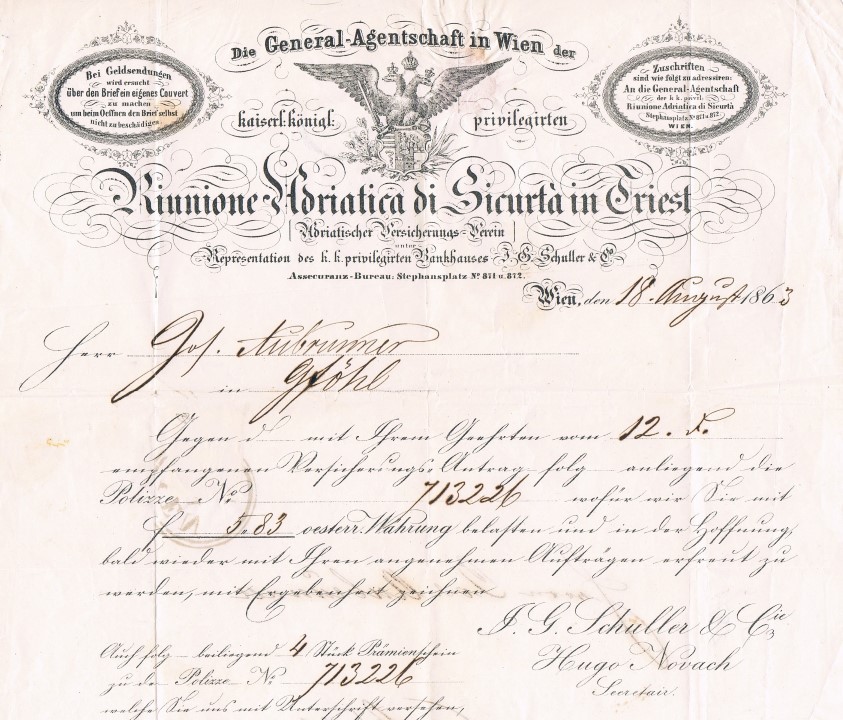 Die General-Agentschaft in Wien der
Bei Geldsendungen
wird ersucht
über den Brief ein eigenes Couvert
zu machen
um beim Oeffnen den Brief selbst
nicht zu beschädigen
Zuschriften
sind wie folgt zu adressiren:
An die General-Agentschaft
der k. k. privil.
Riunione Adriatica di Sicurtà
Stephansplatz No 871 u 872
WIEN.
kaiserl: königl: privilegirten
Riunione Adriatica di Sicurtà in Triest
Adriatischer Versicherungs-Verein
unter
Representation des k. k. privilegirten Bankhauses J. G. Schuller & Co
Assecuranz-Bureau: Stephansplatz No 871 u. 872.
Wien, den 18. August 1863
Herr Jos. Aubrunner
in Gföhl
Gegen d mit Ihrem Geehrten vom 12. d.
empfangenen Versicherungs-Antrag folg anliegend die
Polizze No 713226 wofür wir Sie mit
f 5.83 oesterr. Währung belasten und in der Hoffnung,
bald wieder mit Ihren angenehmen Aufträgen erfreut zu
werden, mit Ergebenheit zeichnen
J. G. Schuller & Cie
Hugo Novach
Secretair.
Auch folg beiliegend 4 Stück Prämienschein
zu de Polizze No 713226
welche Sie uns mit Unterschrift versehen,